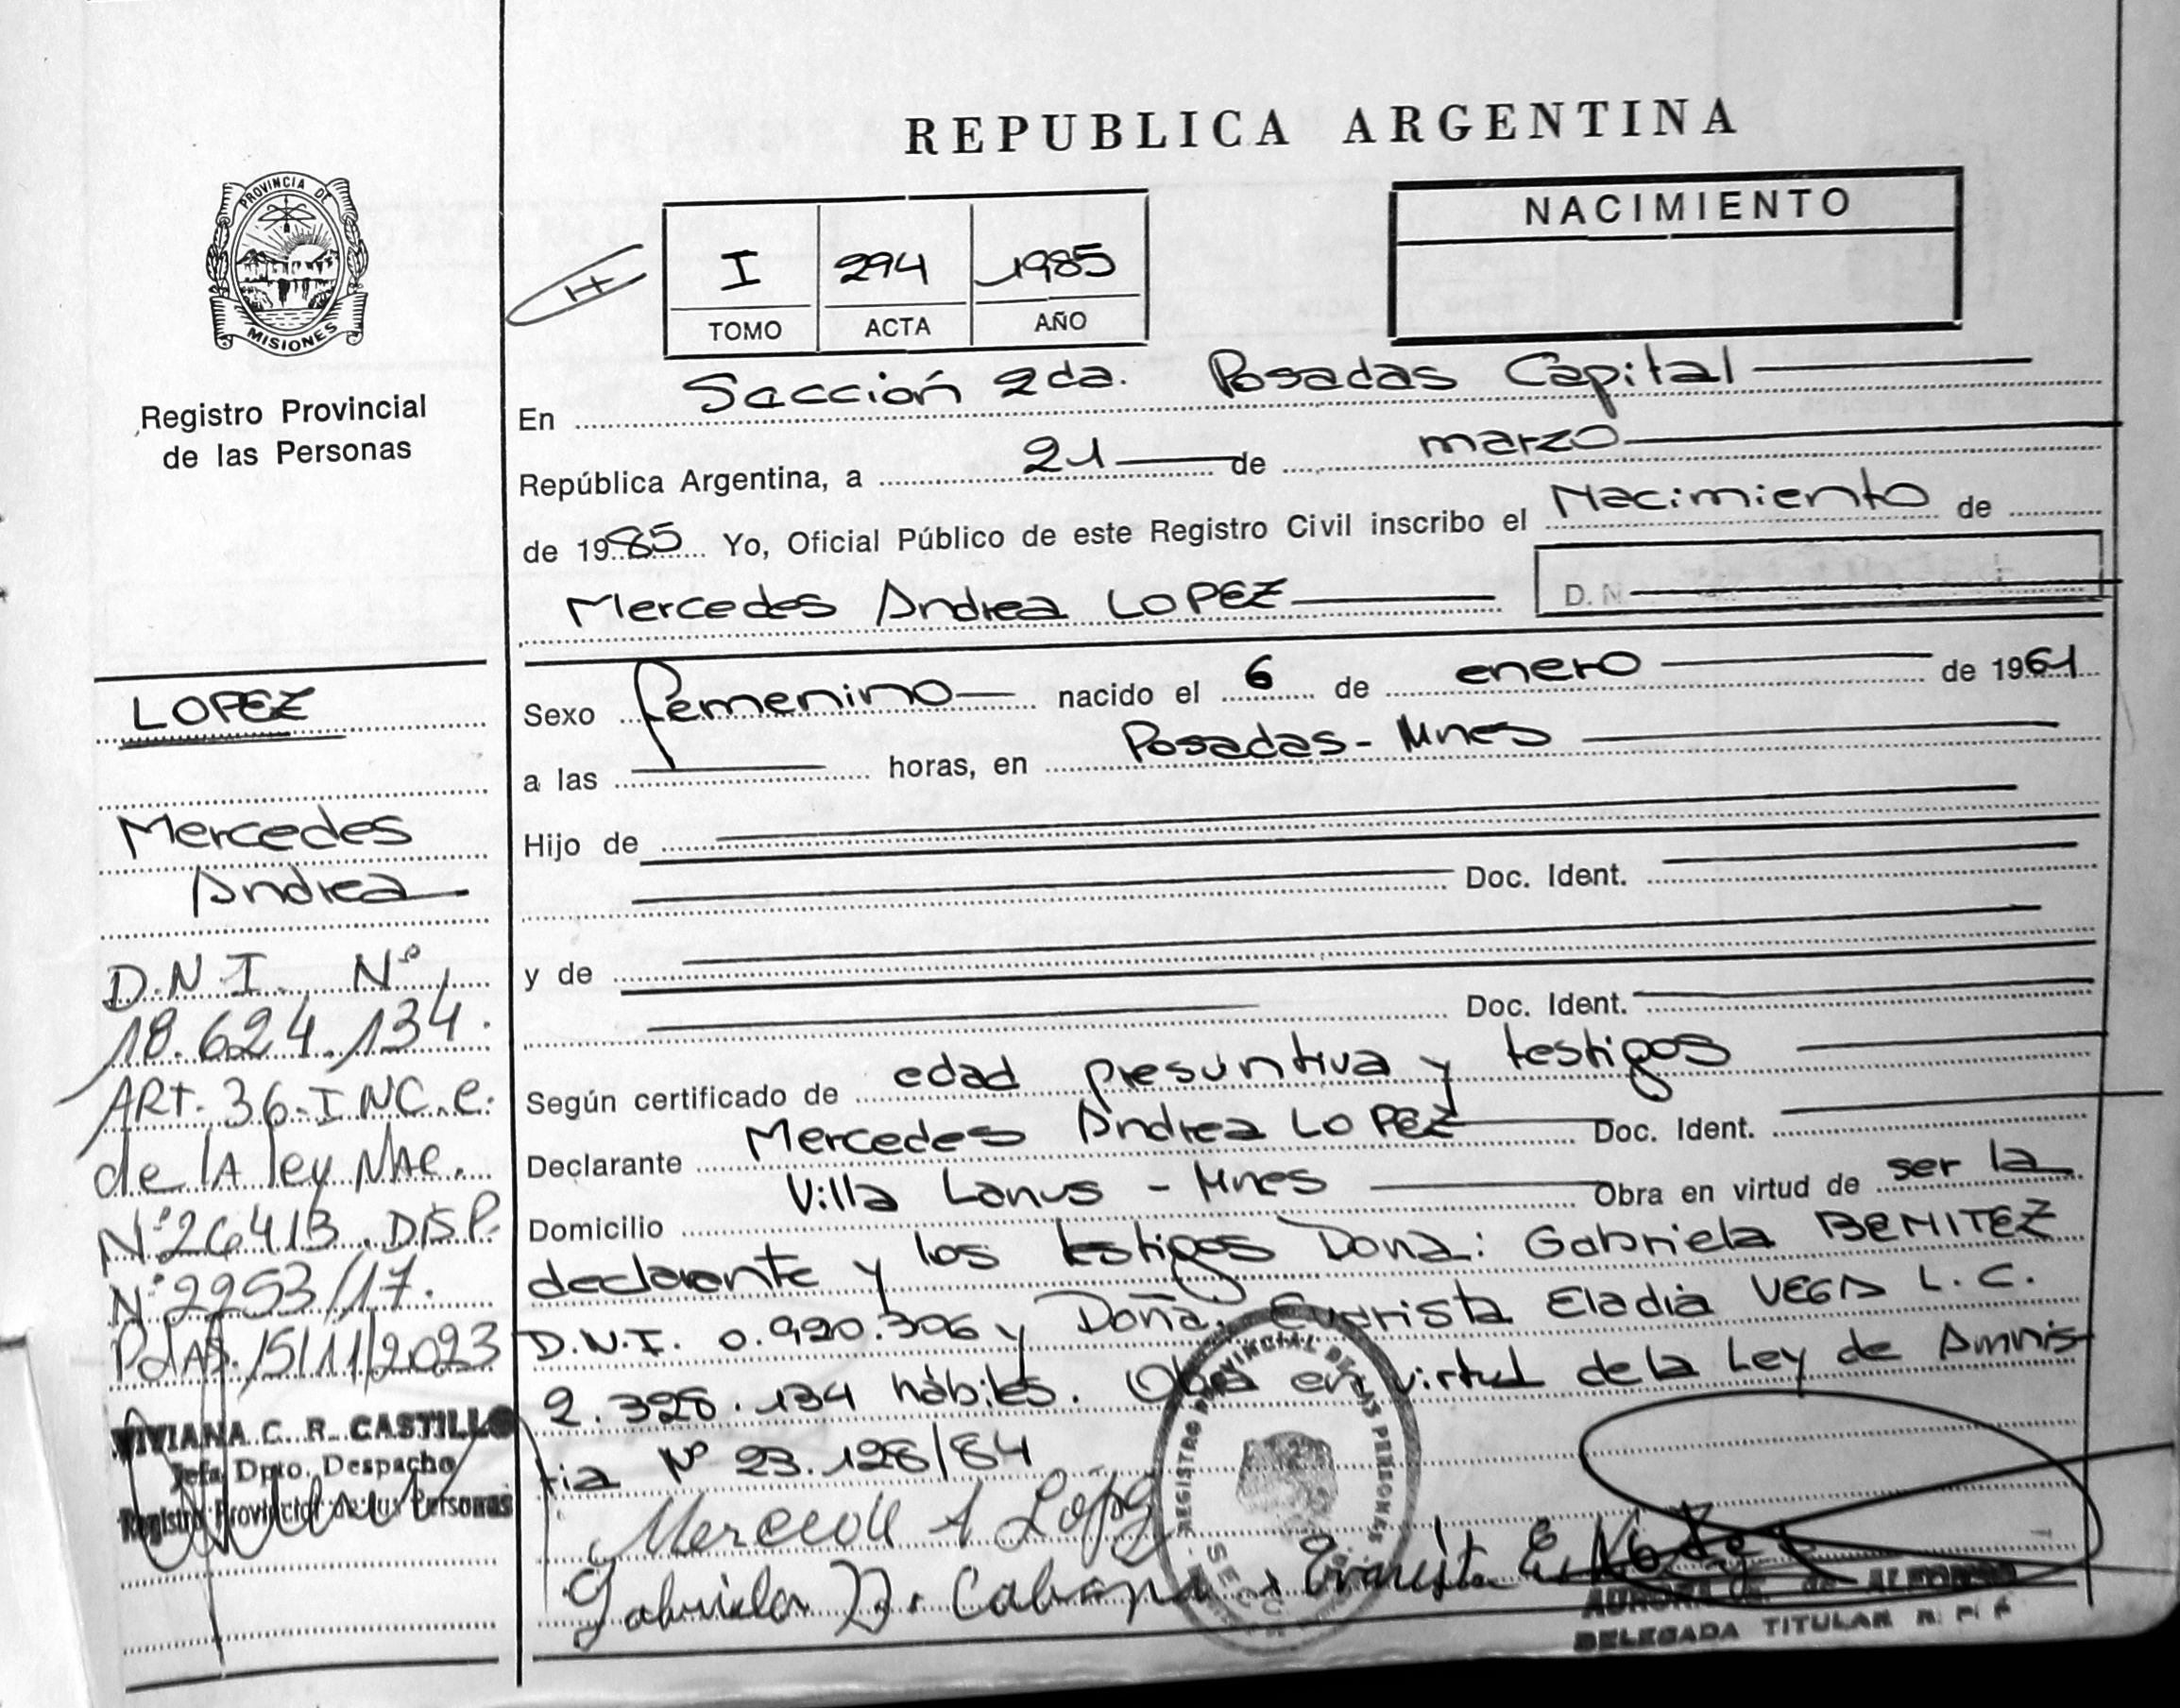 REPUBLICA ARGENTINA
PROVINCIA DE
MISIONES
Registro Provincial
de las Personas
I 294 1985
TOMO ACTA AÑO
NACIMIENTO
En Sección 2da. Posadas Capital
República Argentina, a 21 de marzo
de 1985 Yo, Oficial Público de este Registro Civil inscribo el Nacimiento de
Mercedes Andrea LOPEZ D.N
LOPEZ
Mercedes
Andrea
D.N.I. Nº
18.624.134.
ART. 36. INC. e.
de lA ley NAC.
Nº 26413. DISP.
Nº 2253/17.
PdAS. 15/11/2023
VIVIANA C. R. CASTILLO
Jefa Dpto. Despacho
Registro Provincial de las Personas
Sexo femenino nacido el 6 de enero de 1961
a las horas, en Posadas - Mnes
Hijo de
Doc. Ident.
y de
Doc. Ident.
Según certificado de edad presuntiva y testigos
Declarante Mercedes Andrea LOPEZ Doc. Ident.
Domicilio Villa Lanus - Mnes Obra en virtud de ser la
declarante y los testigos Dona: Gabriela BENITEZ
D.N.I. 0.920.306 y Doña. Evarista Eladia VEGA L.C.
2.328.134 hábiles. Obra en virtud de la Ley de Amnis
tia Nº 23.128/84
REGISTRO PROVINCIAL DE LAS PERSONAS
Mercede A Lopez
Gabriela B. de Evarista E.
AURORA de ALFONSO
DELEGADA TITULAR R. P. P.